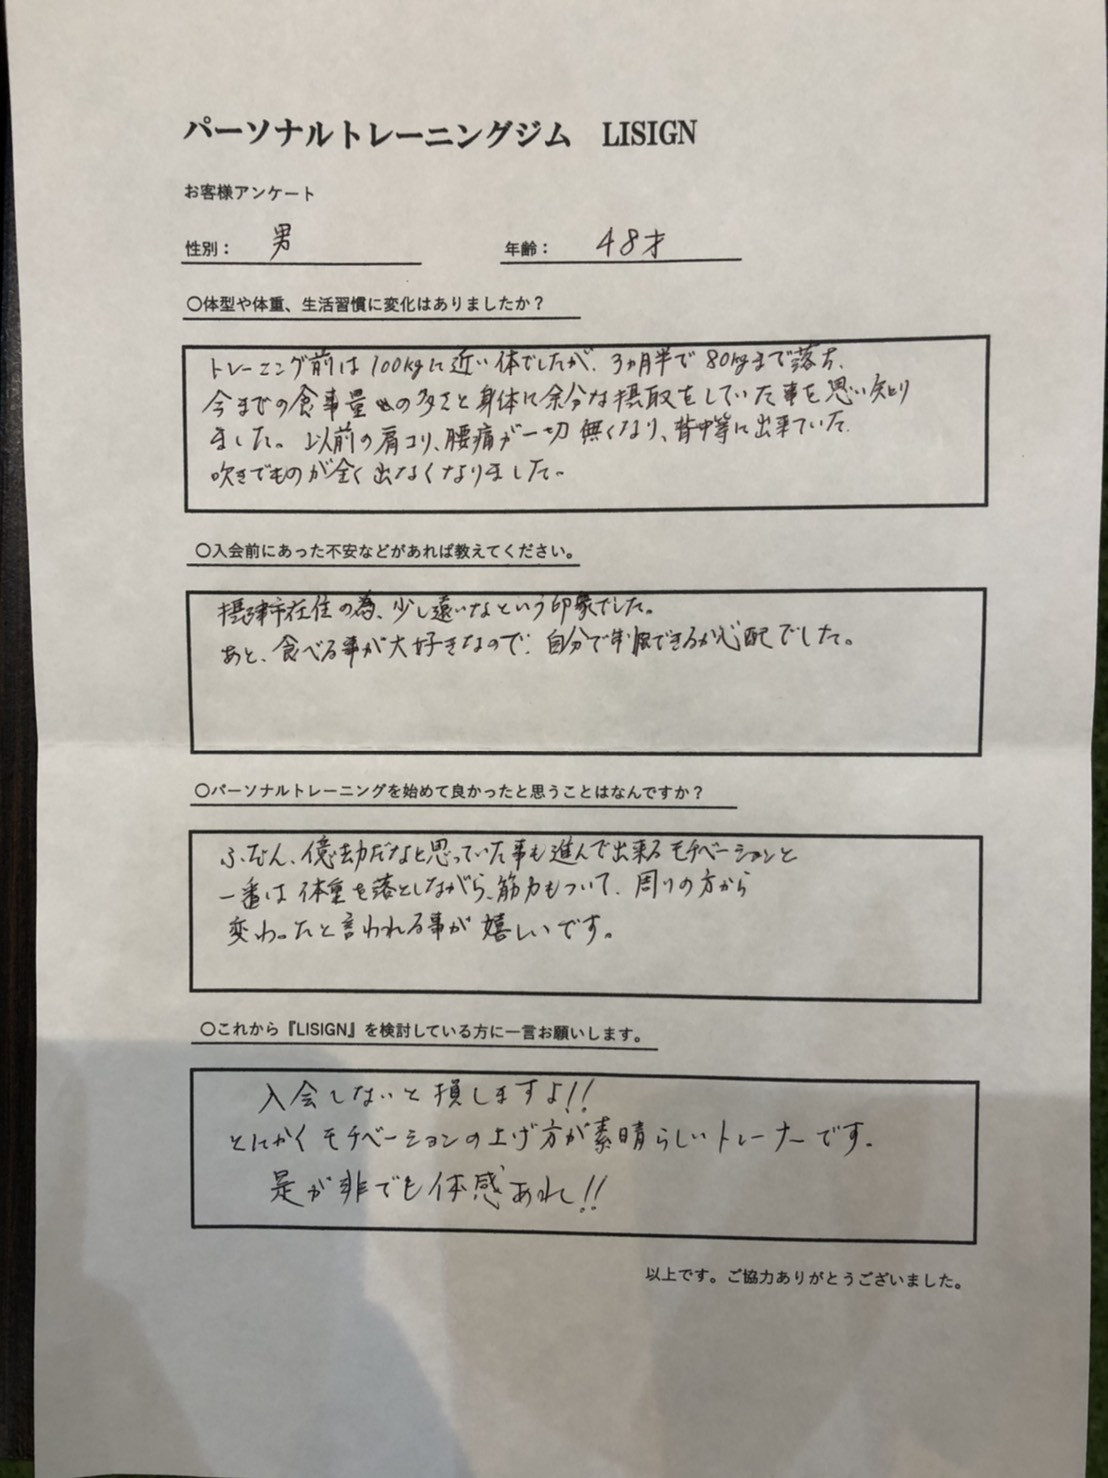 パーソナルトレーニングジム LISIGN
お客様アンケート
性別： 男 年齢： 48才
○体型や体重、生活習慣に変化はありましたか？
トレーニング前は100kgに近い体でしたが、3ヵ月半で80kgまで落ち、
今までの食事量の多さと身体に余分な摂取をしていた事を思い知り
ました。以前の肩コリ、腰痛が一切無くなり、背中等に出来ていた
吹きでものが全く出なくなりました。
○入会前にあった不安などがあれば教えてください。
摂津市在住の為、少し遠いなという印象でした。
あと、食べる事が大好きなので、自分で制限できるか心配でした。
○パーソナルトレーニングを始めて良かったと思うことはなんですか？
ふだん、億劫だなと思っていた事も進んで出来るモチベーションと
一番は体重を落としながら、筋力もついて、周りの方から
変わったと言われる事が嬉しいです。
○これから『LISIGN』を検討している方に一言お願いします。
入会しないと損しますよ!!
とにかくモチベーションの上げ方が素晴らしいトレーナーです。
是が非でも体感あれ!!
以上です。ご協力ありがとうございました。